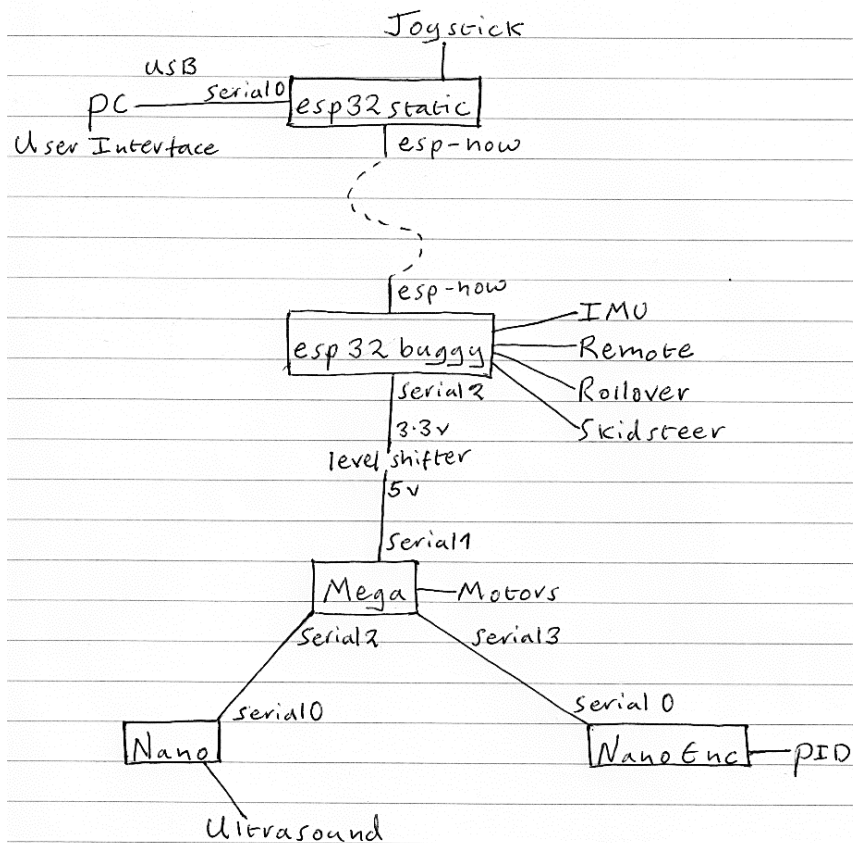 Joystick
USB
PC
serial0
esp32 static
User Interface
esp-now
esp-now
IMU
esp32 buggy
Remote
Rollover
Skidsteer
serial2
3.3v
level shifter
5v
serial1
Mega
Motors
serial2
serial3
serial0
serial0
Nano
Nano Enc
PID
Ultrasound